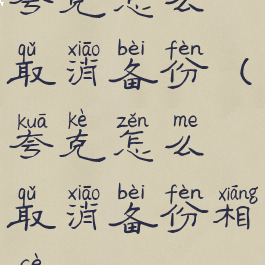 夸克怎么
qǔ xiāo bèi fèn
取消备份(
kuā kè zěn me
夸克怎么
qǔ xiāo bèi fèn xiāng
取消备份相
cè